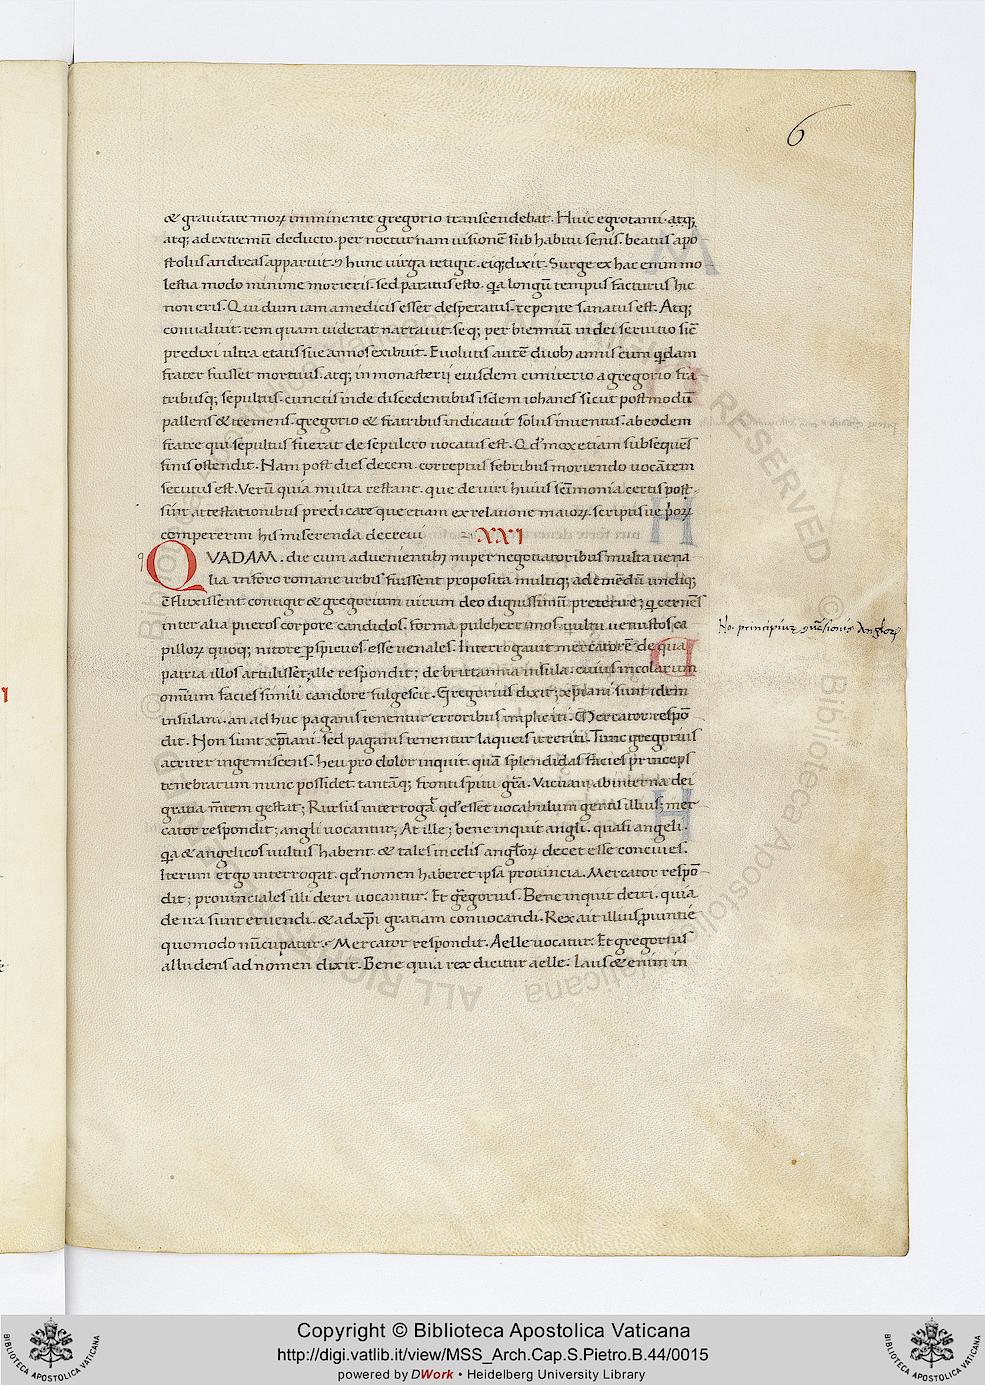 6
& grauitate moꝝ imminente gregorio transcendebat. Huic egrotanti. atq;
atq; ad extremū deducto. per nocturnam uisionē sub habitu senis. beatus apo
stolus andreas apparuit. & hunc uirga tetigit. eiq; dixit. Surge ex hac enim mo
lestia modo minime morieris. sed paratus esto. qa longū tempus facturus hic
non eris. Qui dum iam a medicis esset desperatus. repente sanatus est. Atq;
conualuit. rem quam uiderat narrauit. seq; per bienniū in dei seruitio sic̄
predixi ultra etatis sue annos exibuit. Euolutis autē duobȝ annis cum qdam
frater fuisset mortuus. atq; in monasterij eiusdem cimiterio a gregorio fra
tribusq; sepultus. cunctis inde discedentibus isdem iohanes sicut postmodū
pallens & tremens. gregorio & fratribus indicauit solus inuentus. ab eodem
fratre qui sepultus fuerat de sepulcro uocatus est. Qd' mox etiam subsequēs
finis ostendit. Nam post dies decem. correptus febribus moriendo uocātem
secutus est. Verū quia multa restant. que de uiri huius sc̄imonia certis post
sunt attestationibus predicate que etiam ex relatione maioꝝ. scriptisue p̄oꝝ
compererim his inserenda decreui XXI
QVADAM. die cum aduenientibȝ nuper negotiatoribus multa uena
lia in foro romane urbis fuissent proposita multiq; ad emēdū undiq;
c̄fluxissent. contigit & gregorium uirum deo dignissimū preterire; q cernēs
inter alia pueros corpore candidos. forma pulcherrimos. uultu uenustos ca
pilloꝝ quoq; nitore pspicuos. esse uenales. Interrogauit mercatorē de qua
patria illos attulisset. ille respondit; de britannia insula. cuius incolarum
omnium facies simili candore fulgescit. Gregorius dixit; xp̄iani sunt idem
insulani. an adhuc paganis tenentur erroribus impliciti. Mercator respō
dit. Non sunt xp̄iani. sed paganis tenentur laqueis irretiti. Tunc gregorius
acriter ingemiscens. heu pro dolor inquit. quā splendidas facies princeps
tenebrarum nunc possidet. tantāq; frontispitii gr̄a. Vacuam ab interna dei
gratia m̄tem gestat; Rursus interroga' qd' esset uocabulum gentis illius; mer
cator respondit; angli uocantur; At ille; bene inquit angli. quasi angeli.
qa & angelicos uultus habent. & tales in celis angl'oꝝ decet esse conciues.
Iterum ergo interrogat. qd' nomen haberet ipsa prouincia. Mercator respō
dit; prouinciales illi deiri uocantur. Et gregorius. Bene inquit deiri. quia
de ira sunt eruendi. & ad xp̄i gratiam conuocandi. Rex ait illius puintie
quomodo nūcupatur. Mercator respondit. Aelle uocatur. Et gregorius
alludens ad nomen dixit. Bene quia rex dicitur aelle. laus & enim in
No. principium 9uersionis Angl'oꝝ
© Biblioteca Apostolica Vaticana
ALL RIGHTS RESERVED
Copyright © Biblioteca Apostolica Vaticana
http://digi.vatlib.it/view/MSS_Arch.Cap.S.Pietro.B.44/0015
powered by DWork • Heidelberg University Library
BIBLIOTECA APOSTOLICA VATICANA
BIBLIOTECA APOSTOLICA VATICANA